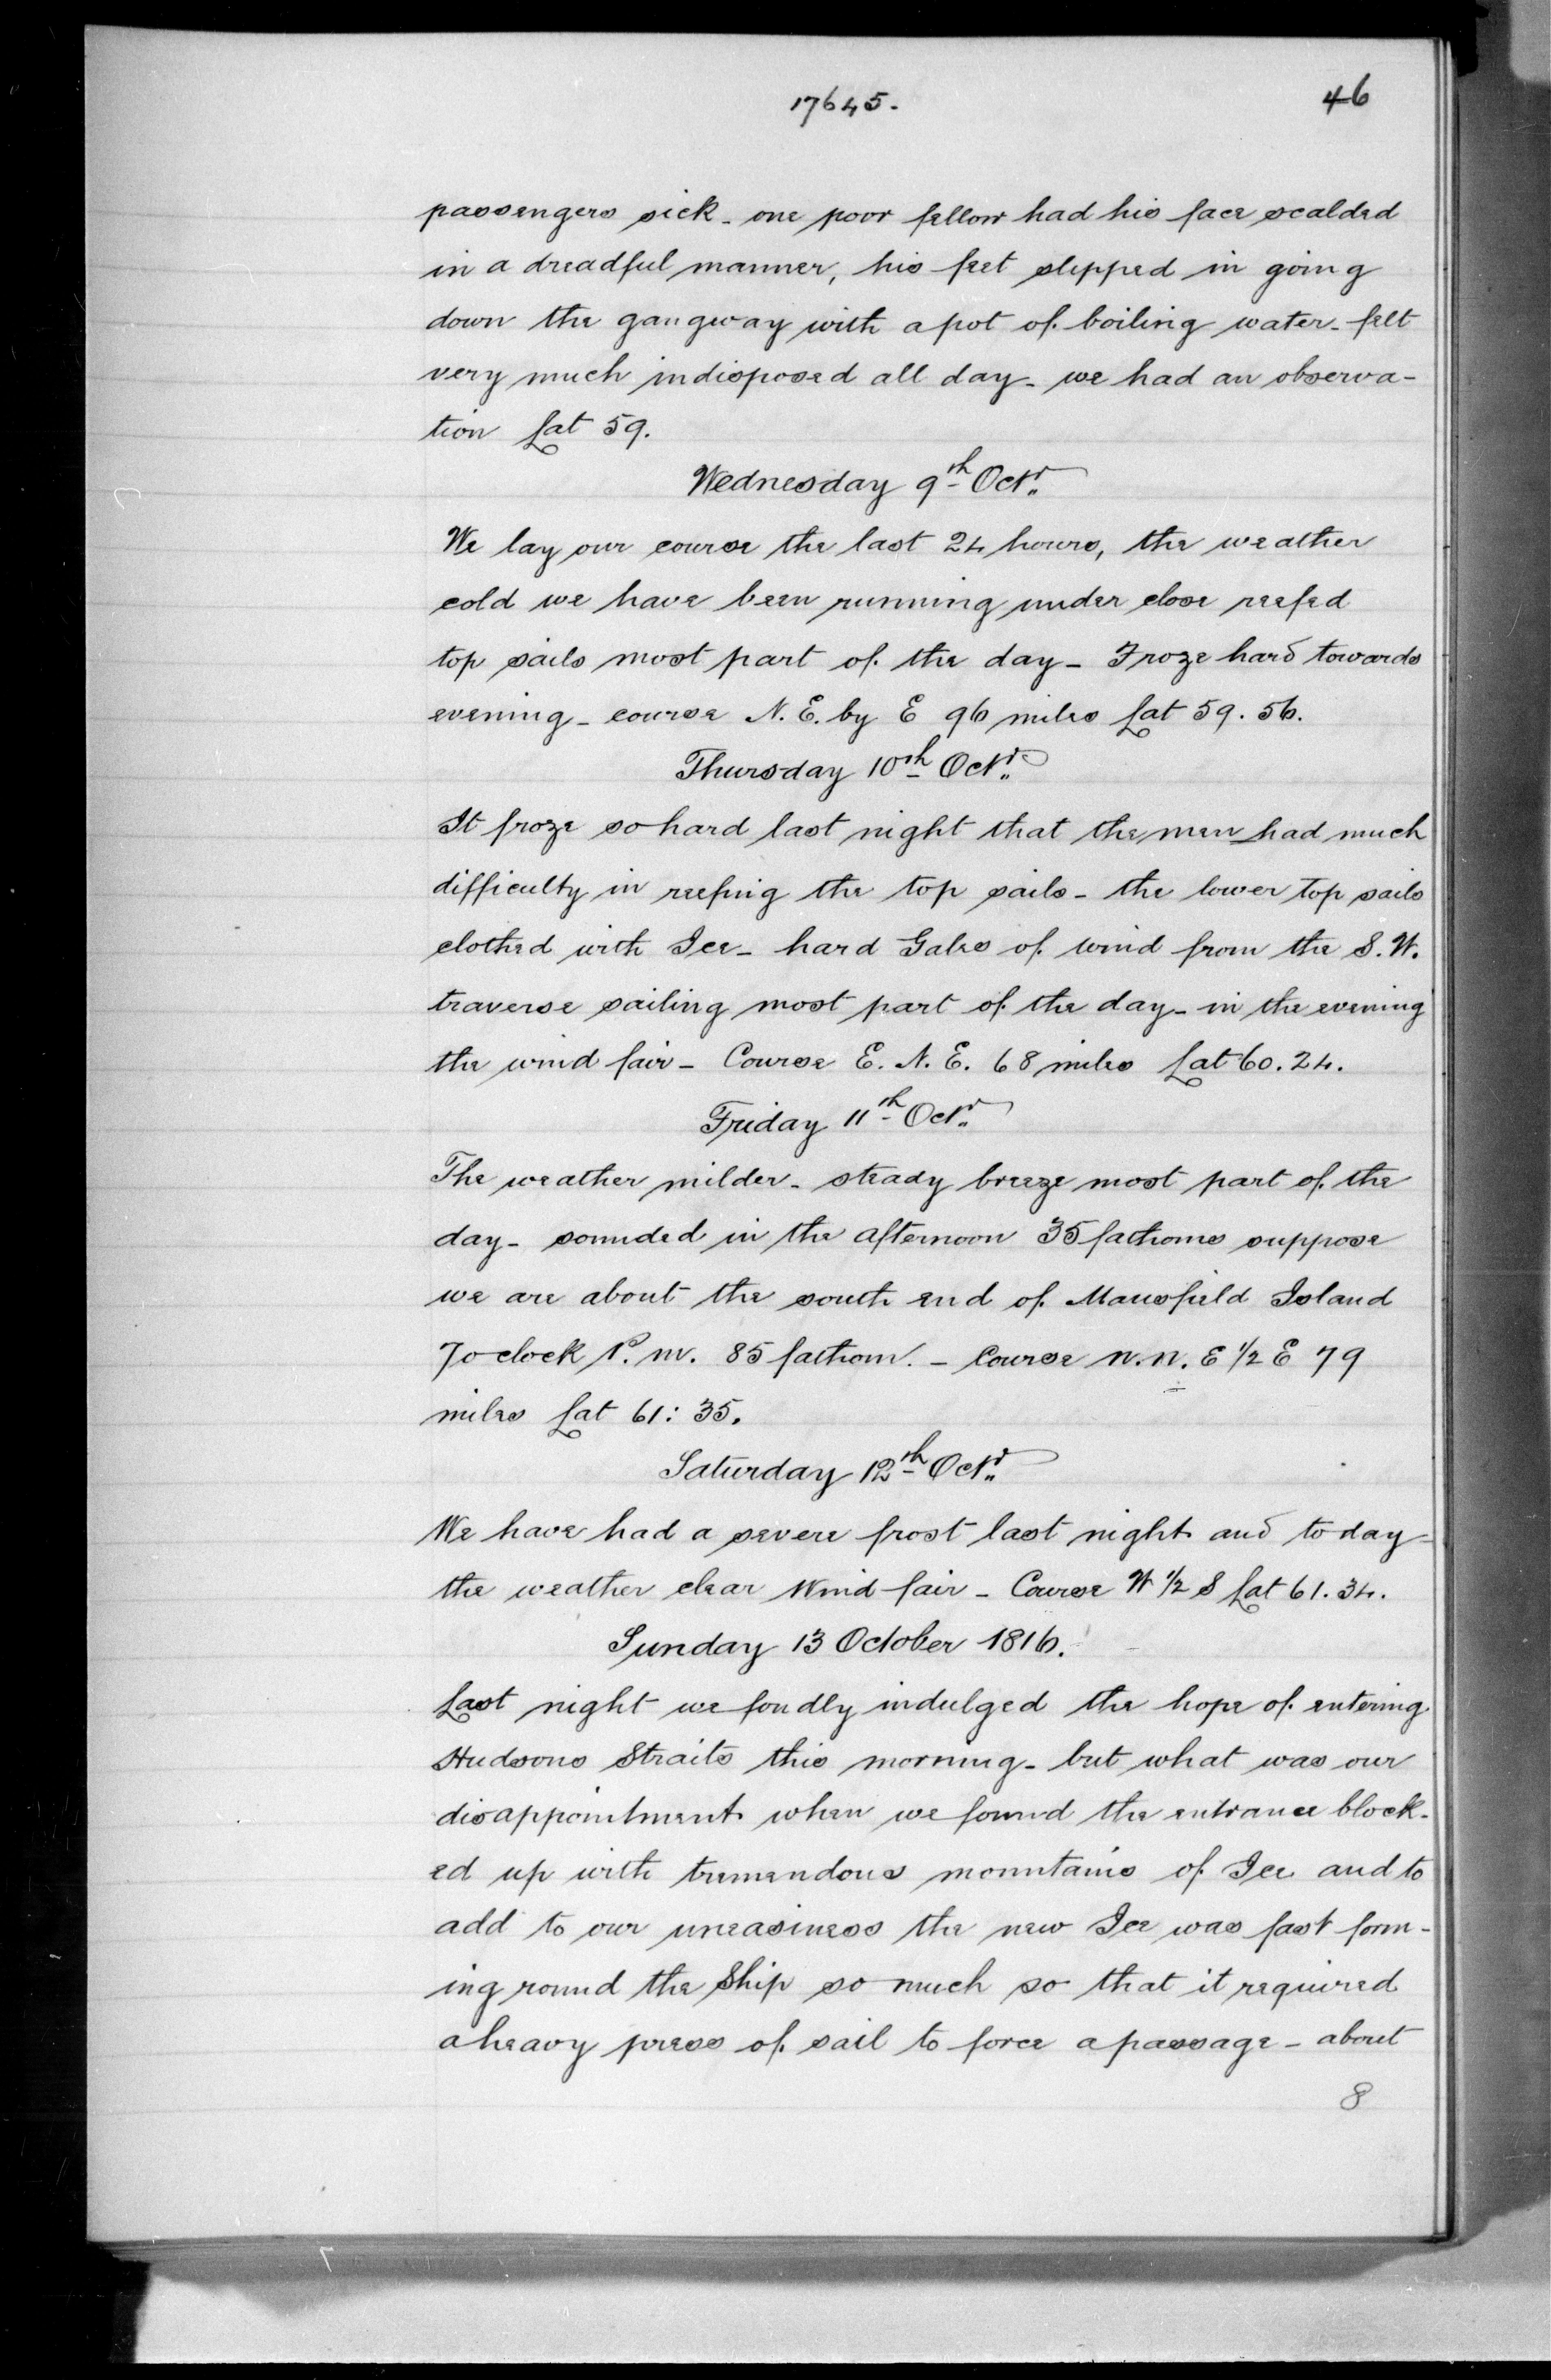 17645.
46
passengers sick - one poor fellow had his face scalded
in a dreadful manner, his feet slipped in going
down the gangway with a pot of boiling water - felt
very much indisposed all day - we had an observa-
tion Lat 59.
Wednesday 9th Octr.
We lay our course the last 24 hours, the weather
cold we have been running under close reefed
top sails most part of the day - Froze hard towards
evening - course N. E. by E 96 miles Lat 59. 56.
Thursday 10th Octr.
It froze so hard last night that the men had much
difficulty in reefing the top sails - the lower top sails
clothed with Ice - hard Gales of wind from the S. W.
traverse sailing most part of the day - in the evening
the wind fair - Course E. N. E. 68 miles Lat 60. 24.
Friday 11th Octr.
The weather milder - steady breeze most part of the
day - sounded in the afternoon 35 fathoms suppose
we are about the south end of Mansfield Island
7 o clock P. M. 85 fathom. - Course N. N. E 1/2 E 79
miles Lat 61: 35.
Saturday 12th Octr.
We have had a severe frost last night and to day -
the weather clear Wind fair - Course W 1/2 S Lat 61. 34.
Sunday 13 October 1816.
Last night we fondly indulged the hope of entering
Hudsons Straits this morning - but what was our
disappointment when we found the entrance block-
ed up with tremendous mountains of Ice and to
add to our uneasiness the new Ice was fast form-
ing round the Ship so much so that it required
a heavy press of sail to force a passage - about
8